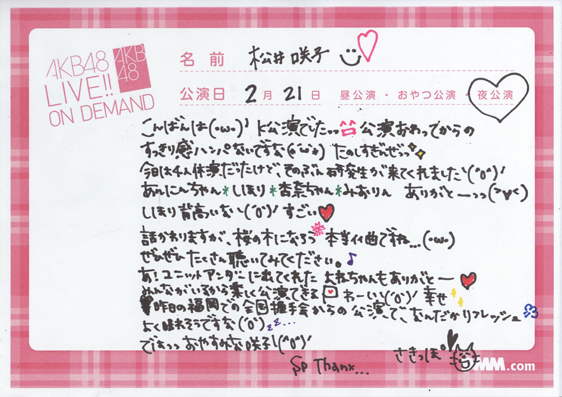 AKB48
LIVE!!
ON DEMAND
AKB
48
名前 松井咲子
公演日 2月21日 昼公演・おやつ公演・夜公演
こんばんは(・ω・)ノK公演でたっっ 公演おわってからの
すっきり感ハンパないですな たのしすぎぜっ
今日は4人休演だったけど、そのぶん研究生が来てくれました\(^o^)/
あんにんちゃん*しほり*杏奈ちゃん*みおりん ありがとーっっ
しほり背高いな\(^o^)/すごい
話かわりますが、桜の木になろう 本当名曲ですね…(・ω・)
ぜひぜひたくさん聴いてみてください。♪
あ!ユニットアンダーに出てくれた よねちゃんもありがとー
みんながいるから楽しく公演できる わーい\(^o^)/ 幸せ
昨日の福岡での全国握手会からの公演で、なんだかリフレッシュ
よく眠れそうですな(^o^)zzz…
ではっっ おやすみな咲子!(^o^)/
Sp Thanx...
さきっぽ
DMM.com